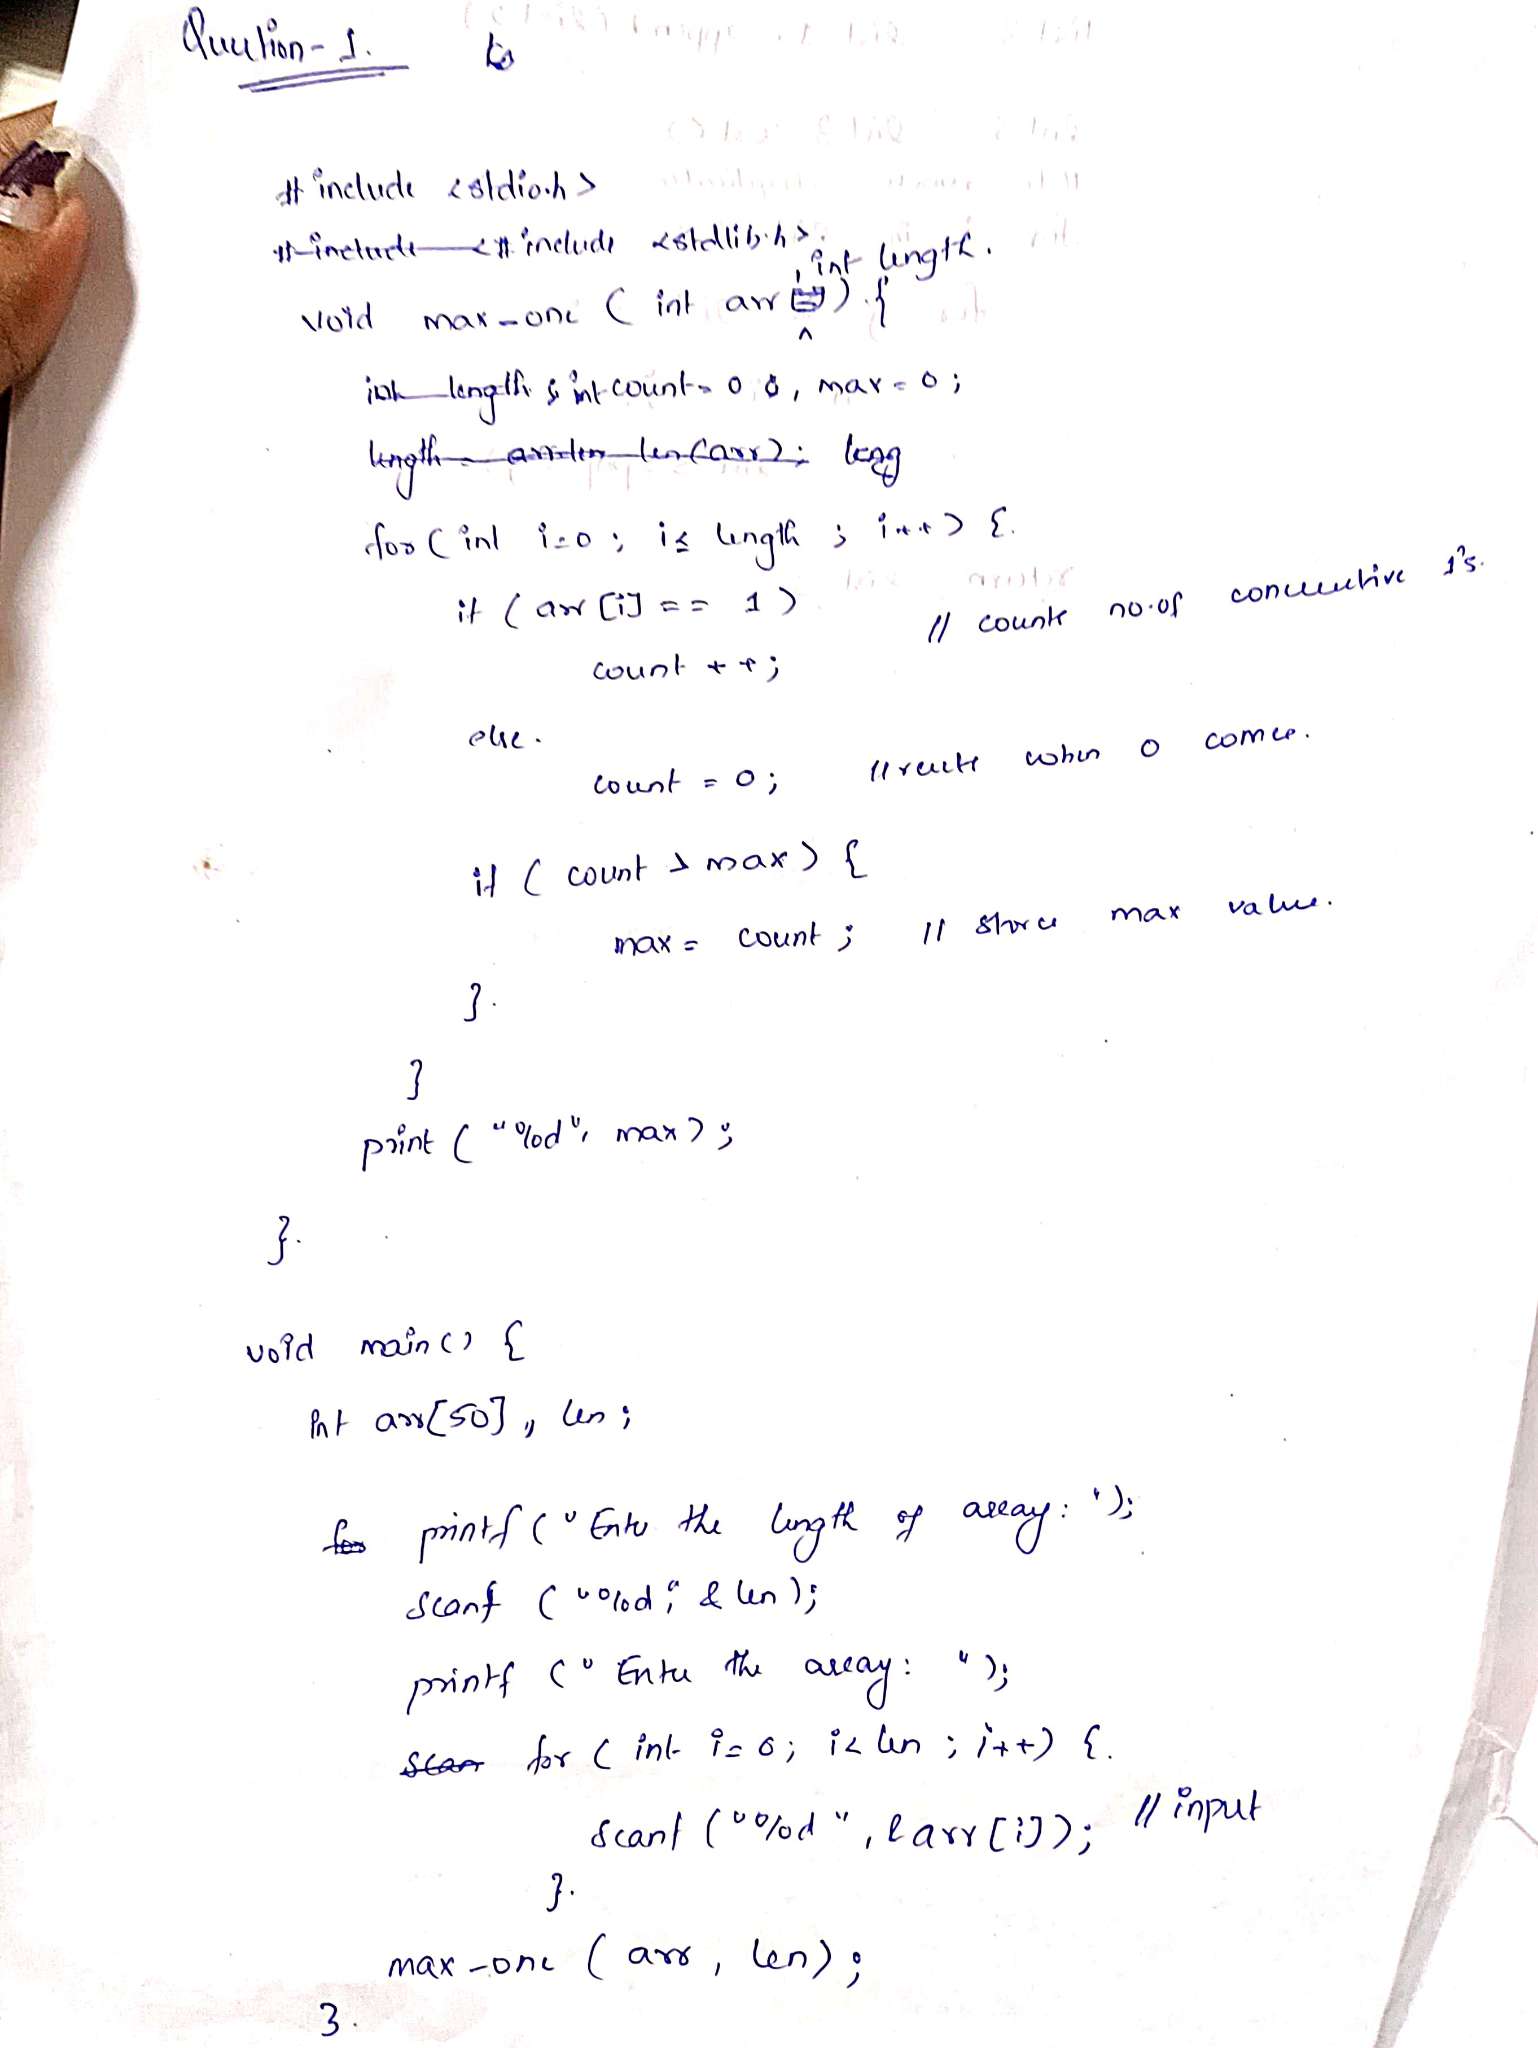 Question - 1.
#include <stdio.h>
#include < #include <stdlib.h>
void max_one ( int arr[], int length ) {
int length; int count = 0, max = 0;
length = len(arr); leng
for ( int i=0; i< length ; i++) {
if ( arr [i] == 1 ) // counts no.of consecutive 1's.
count ++;
else.
count = 0; // resets when 0 comes.
if ( count > max ) {
max = count ; // stores max value.
}.
}
print ( "%d", max );
}.
void main() {
int arr[50], len ;
for printf ( "Enter the length of array: ");
scanf ( "%d", & len );
printf ( " Enter the array: " );
scan for ( int i=0; i< len ; i++) {.
scanf ( "%d", &arr [i]); // input
}.
max_one ( arr , len );
}.